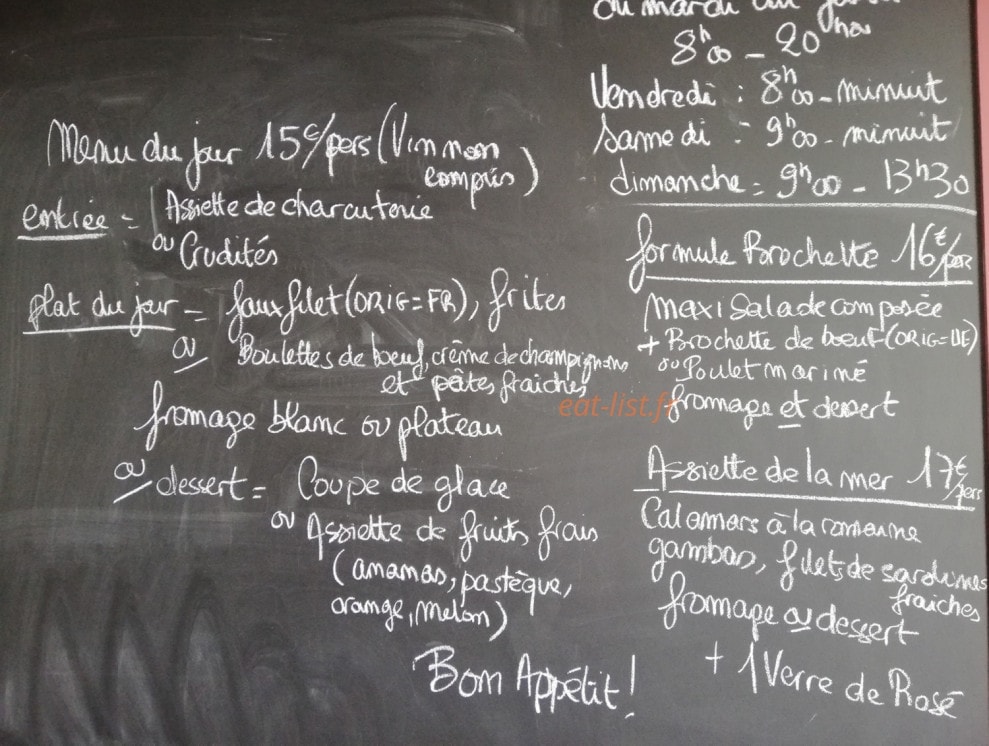 Menu du jour 15€/pers (Vin non
compris)
entrée = Assiette de charcuterie
ou Crudités
plat du jour = faux filet (ORIG=FR), frites
ou Boulettes de boeuf, crème de champignons
et pâtes fraiches
fromage blanc ou plateau
ou dessert = Coupe de glace
ou Assiette de fruits frais
(ananas, pastèque,
orange, melon)
Bon Appétit !
du mardi au
8h00 - 20h00
Vendredi : 8h00 - minuit
Samedi : 9h00 - minuit
dimanche = 9h00 - 13h30
formule Brochette 16€/pers
Maxi Salade composée
+ Brochette de boeuf (ORIG=UE)
ou Poulet mariné
fromage et dessert
Assiette de la mer 17€/pers
Calamars à la romaine
gambas, filets de sardines
fraiches
fromage ou dessert
+ 1 Verre de Rosé
eat-list.fr